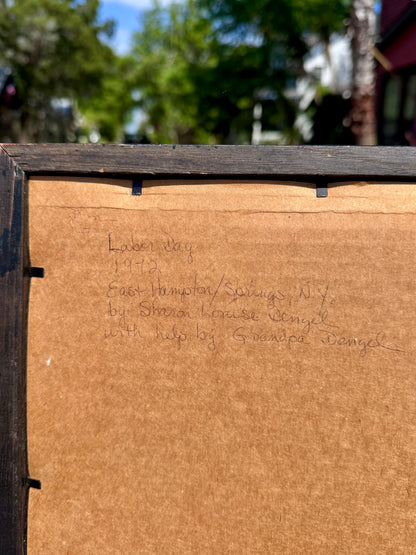 Labor Day
1972
East Hampton/Springs, N.Y.
by Sharon Louise Dengel
with help by Grandpa Dengel